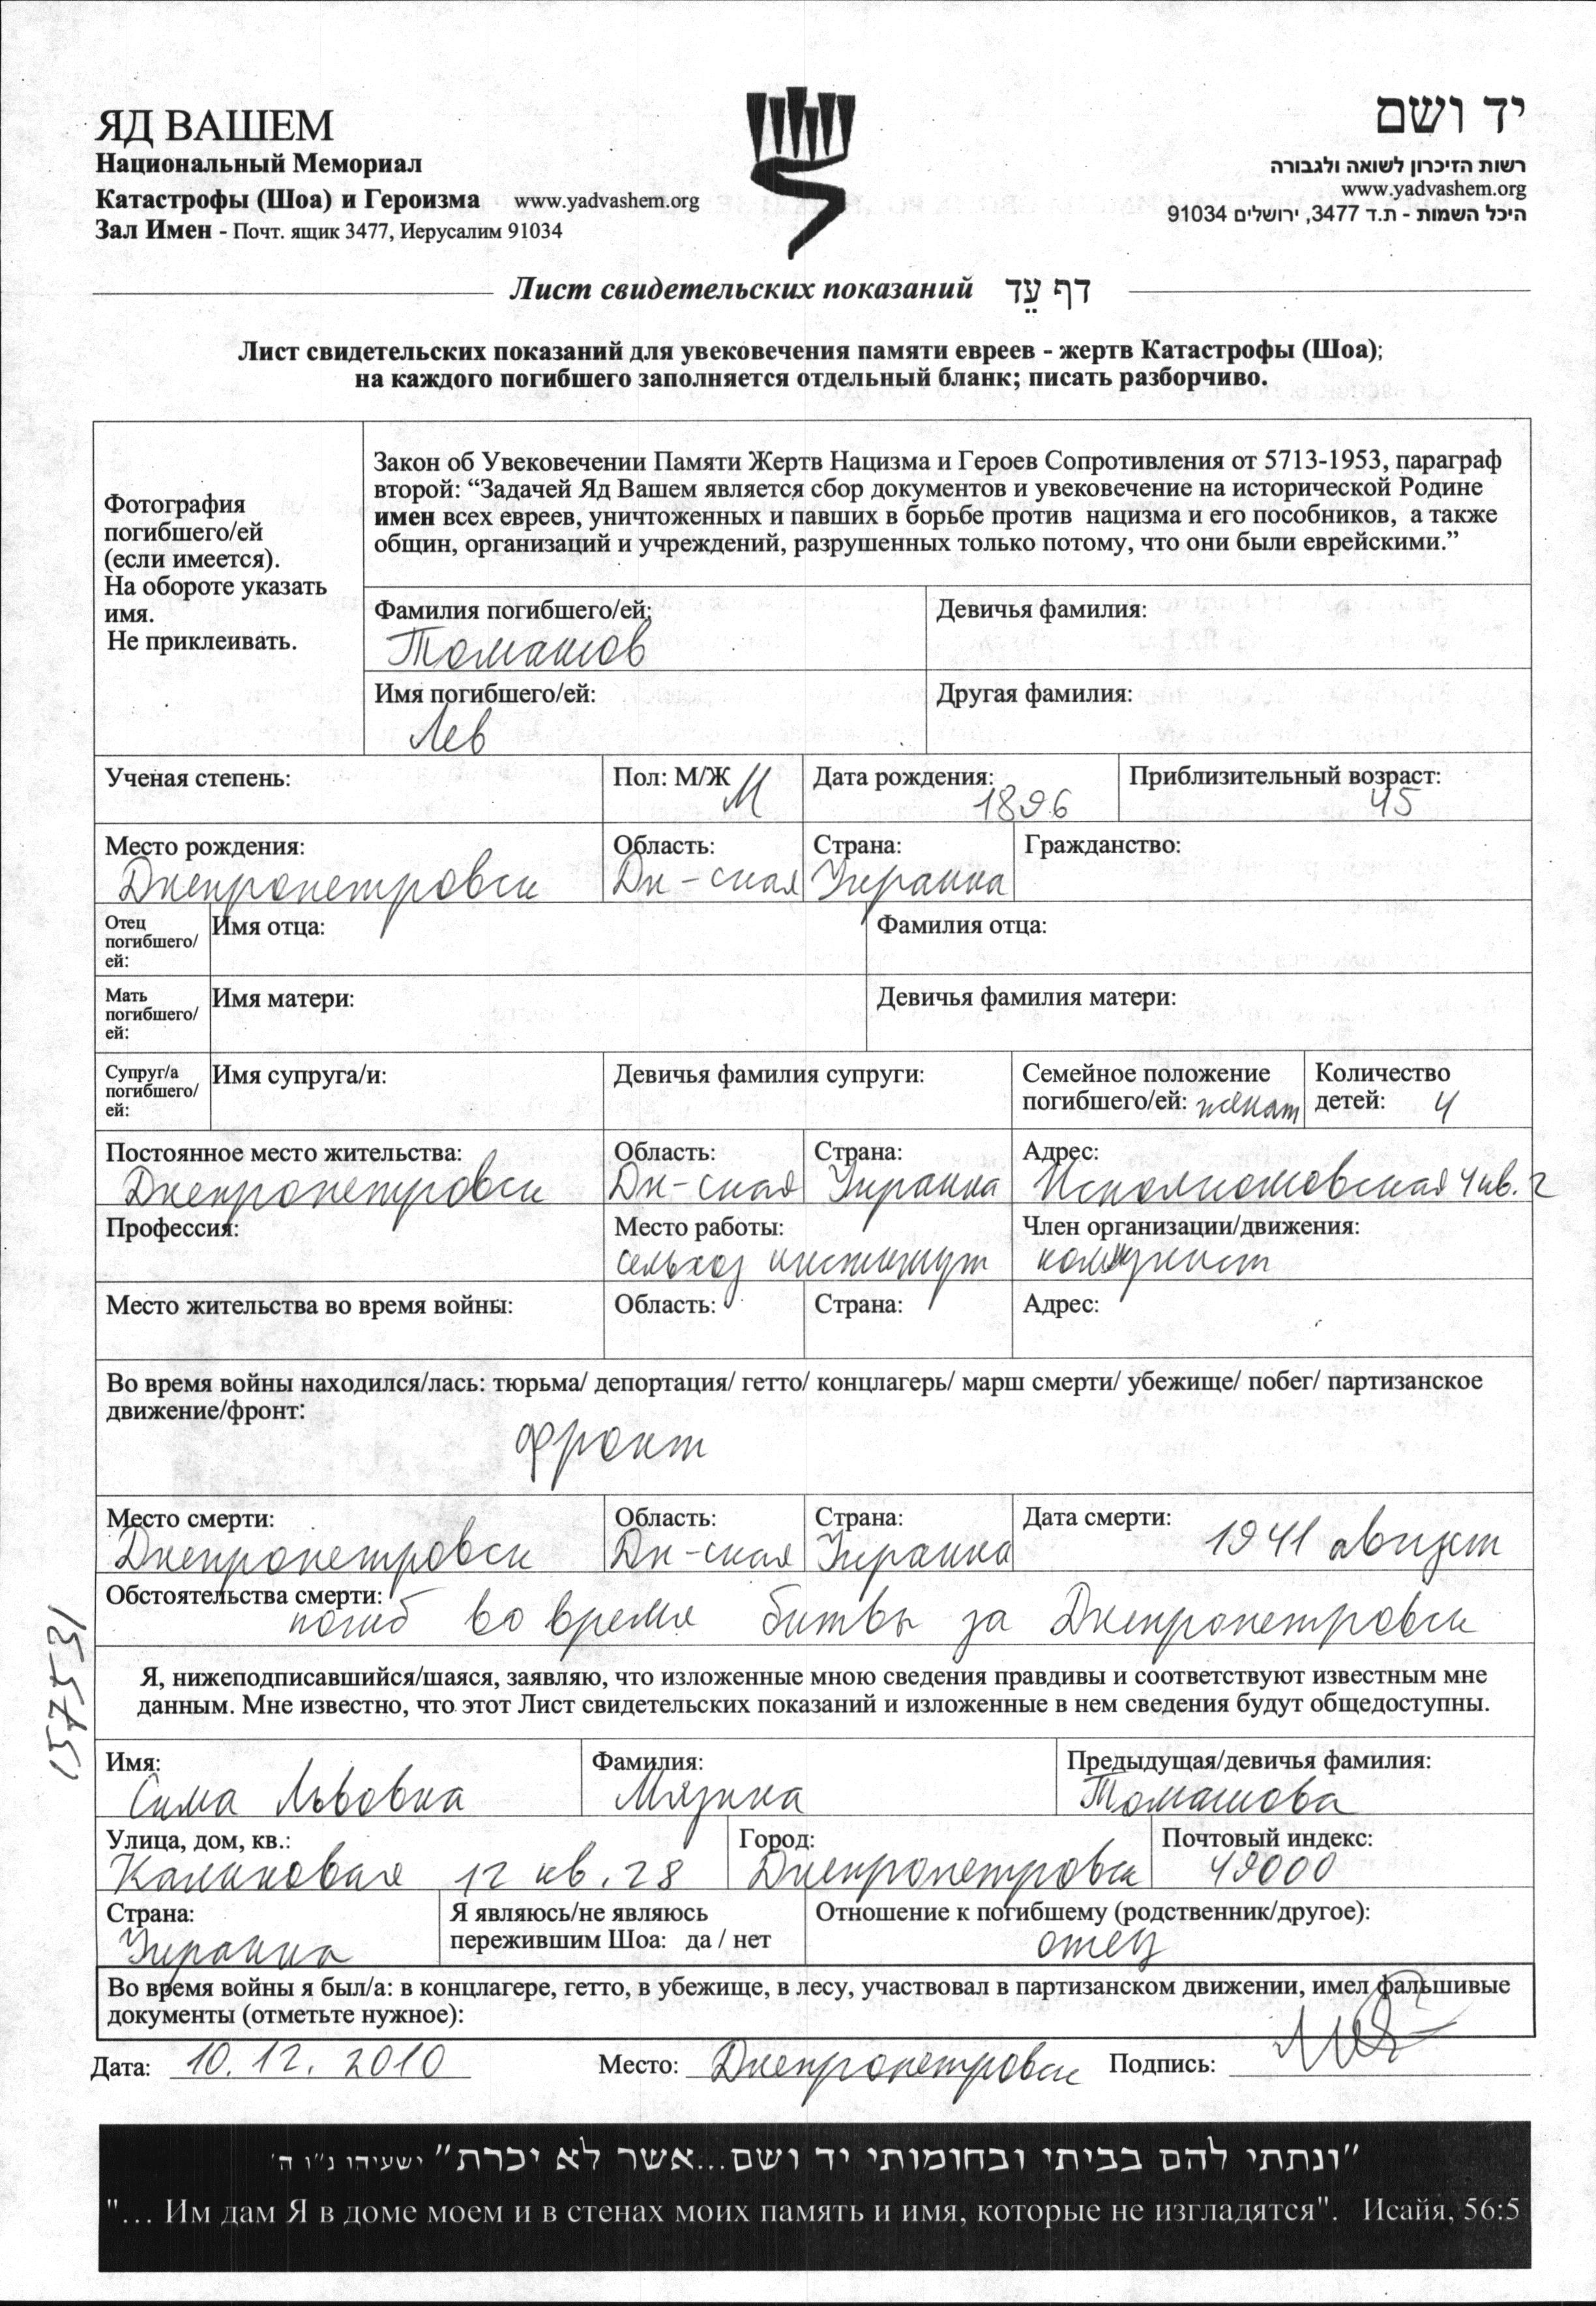 ЯД ВАШЕМ
Национальный Мемориал
Катастрофы (Шоа) и Героизма www.yadvashem.org
Зал Имен - Почт. ящик 3477, Иерусалим 91034
יד ושם
רשות הזיכרון לשואה ולגבורה
www.yadvashem.org
היכל השמות - ת.ד 3477, ירושלים 91034
Лист свидетельских показаний דף עֵד
Лист свидетельских показаний для увековечения памяти евреев - жертв Катастрофы (Шоа);
на каждого погибшего заполняется отдельный бланк; писать разборчиво.
Фотография
погибшего/ей
(если имеется).
На обороте указать
имя.
Не приклеивать.
Закон об Увековечении Памяти Жертв Нацизма и Героев Сопротивления от 5713-1953, параграф
второй: “Задачей Яд Вашем является сбор документов и увековечение на исторической Родине
имен всех евреев, уничтоженных и павших в борьбе против нацизма и его пособников, а также
общин, организаций и учреждений, разрушенных только потому, что они были еврейскими.”
Фамилия погибшего/ей: Девичья фамилия:
Томашов
Имя погибшего/ей: Другая фамилия:
Лев
Ученая степень: Пол: М/Ж М Дата рождения: 1896 Приблизительный возраст: 45
Место рождения: Область: Страна: Гражданство:
Днепропетровск Дн-ская Украина
Отец
погибшего/
ей:
Имя отца: Фамилия отца:
Мать
погибшего/
ей:
Имя матери: Девичья фамилия матери:
Супруг/а
погибшего/
ей:
Имя супруга/и: Девичья фамилия супруги:
Семейное положение
погибшего/ей: женат
Количество
детей: 4
Постоянное место жительства: Область: Страна: Адрес:
Днепропетровск Дн-ская Украина Исполкомовская 4 кв. 2
Профессия: Место работы: Член организации/движения:
сельхоз институт коммунист
Место жительства во время войны: Область: Страна: Адрес:
Во время войны находился/лась: тюрьма/ депортация/ гетто/ концлагерь/ марш смерти/ убежище/ побег/ партизанское
движение/фронт:
фронт
Место смерти: Область: Страна: Дата смерти:
Днепропетровск Дн-ская Украина 1941 август
Обстоятельства смерти:
погиб во время битвы за Днепропетровск
Я, нижеподписавшийся/шаяся, заявляю, что изложенные мною сведения правдивы и соответствуют известным мне
данным. Мне известно, что этот Лист свидетельских показаний и изложенные в нем сведения будут общедоступны.
Имя: Фамилия: Предыдущая/девичья фамилия:
Сима Львовна Мязина Томашова
Улица, дом, кв.: Город: Почтовый индекс:
Калиновая 12 кв. 28 Днепропетровск 49000
Страна:
Украина
Я являюсь/не являюсь
пережившим Шоа: да / нет
Отношение к погибшему (родственник/другое):
отец
Во время войны я был/а: в концлагере, гетто, в убежище, в лесу, участвовал в партизанском движении, имел фальшивые
документы (отметьте нужное):
Дата: 10.12.2010 Место: Днепропетровск Подпись:
"ונתתי להם בביתי ובחומותי יד ושם...אשר לא יכרת" ישעיהו נ"ו ה'
"... Им дам Я в доме моем и в стенах моих память и имя, которые не изгладятся". Исайя, 56:5